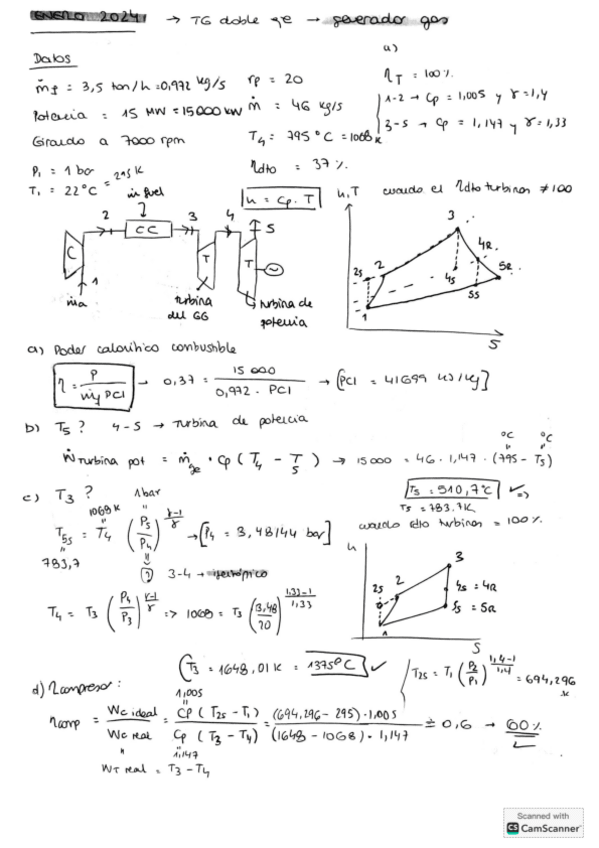 ENERO 2024 → TG doble eje → generador gas
Datos
ṁf = 3,5 ton/h = 0,972 kg/s rp = 20
Potencia = 15 MW = 15000 kW ṁ = 46 kg/s
Girando a 7000 rpm T4 = 795 °C = 1068 K
P1 = 1 bar ηdto = 37 %
T1 = 22°C = 295 K
a)
ηT = 100%
1-2 → Cp = 1,005 y γ = 1,4
3-5 → Cp = 1,147 y γ = 1,33
h = Cp · T
h,T cuando el ηdto turbinas ≠ 100
ṁ fuel
C
CC
T
T
1
2
3
4
5
ṁa
turbina del GG
turbina de potencia
1
2s
2
3
4s
4R
5s
5R
S
a) Poder calorífico combustible
η = P / ṁf PCI → 0,37 = 15 000 / 0,972 · PCI → [PCI = 41699 kJ/kg]
b) T5 ? 4-5 → turbina de potencia
°C °C
Ẇturbina pot = ṁge · Cp (T4 - T5) → 15000 = 46 · 1,147 · (795 - T5)
T5 = 510,7°C
T5 = 783.7K
c) T3 ?
1068K 1 bar
T5s = T4 (P5/P4)^(γ-1/γ) → [P4 = 3,48144 bar]
783,7
? 3-4 → isentrópico
T4 = T3 (P4/P3)^(γ-1/γ) => 1068 = T3 (3,48/20)^(1,33-1/1,33)
T3 = 1648,01 K = 1375°C
cuando ηdto turbinas = 100%
h
1
2s
2
3
4s = 4R
5s = 5R
S
T2s = T1 (P2/P1)^(1,4-1/1,4) = 694,296 K
d) ηcompresor:
1,005
ηcomp = Wc ideal / Wc real = Cp (T2s - T1) / Cp (T3 - T4) = (694,296 - 295) · 1,005 / (1648 - 1068) · 1,147 = 0,6 → 60%
1,147
WT real = T3 - T4
Scanned with
CS CamScanner